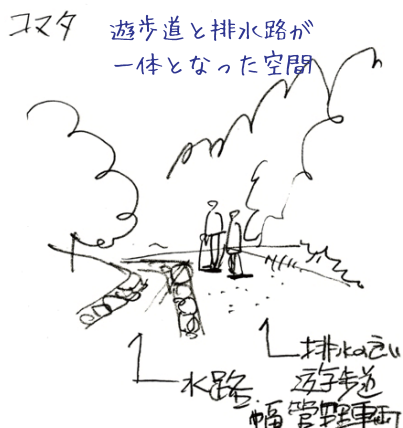 コマタ
遊歩道と排水路が
一体となった空間
水路
排水の良い
遊歩道
幅 管理車可